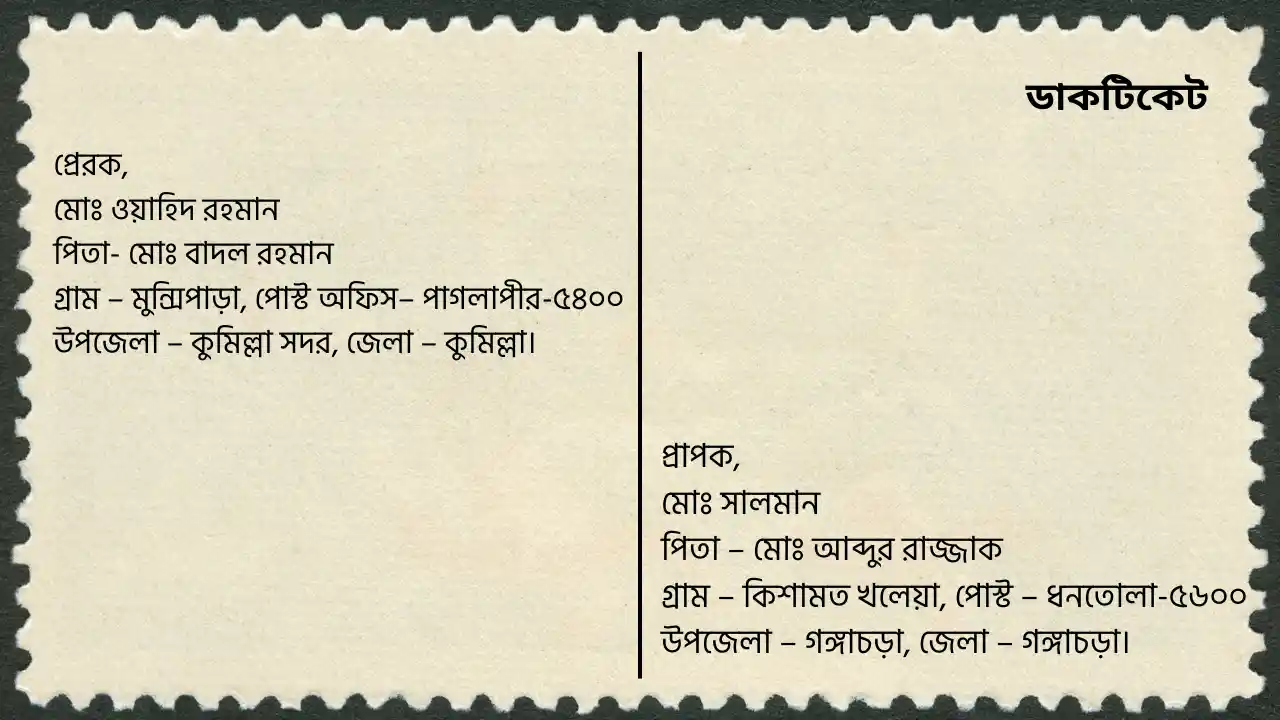 ডাকটিকেট
প্রেরক,
মোঃ ওয়াহিদ রহমান
পিতা- মোঃ বাদল রহমান
গ্রাম – মুন্সিপাড়া, পোস্ট অফিস– পাগলাপীর-৫৪০০
উপজেলা – কুমিল্লা সদর, জেলা – কুমিল্লা।
প্রাপক,
মোঃ সালমান
পিতা – মোঃ আব্দুর রাজ্জাক
গ্রাম – কিশামত খলেয়া, পোস্ট – ধনতোলা-৫৬০০
উপজেলা – গঙ্গাচড়া, জেলা – গঙ্গাচড়া।